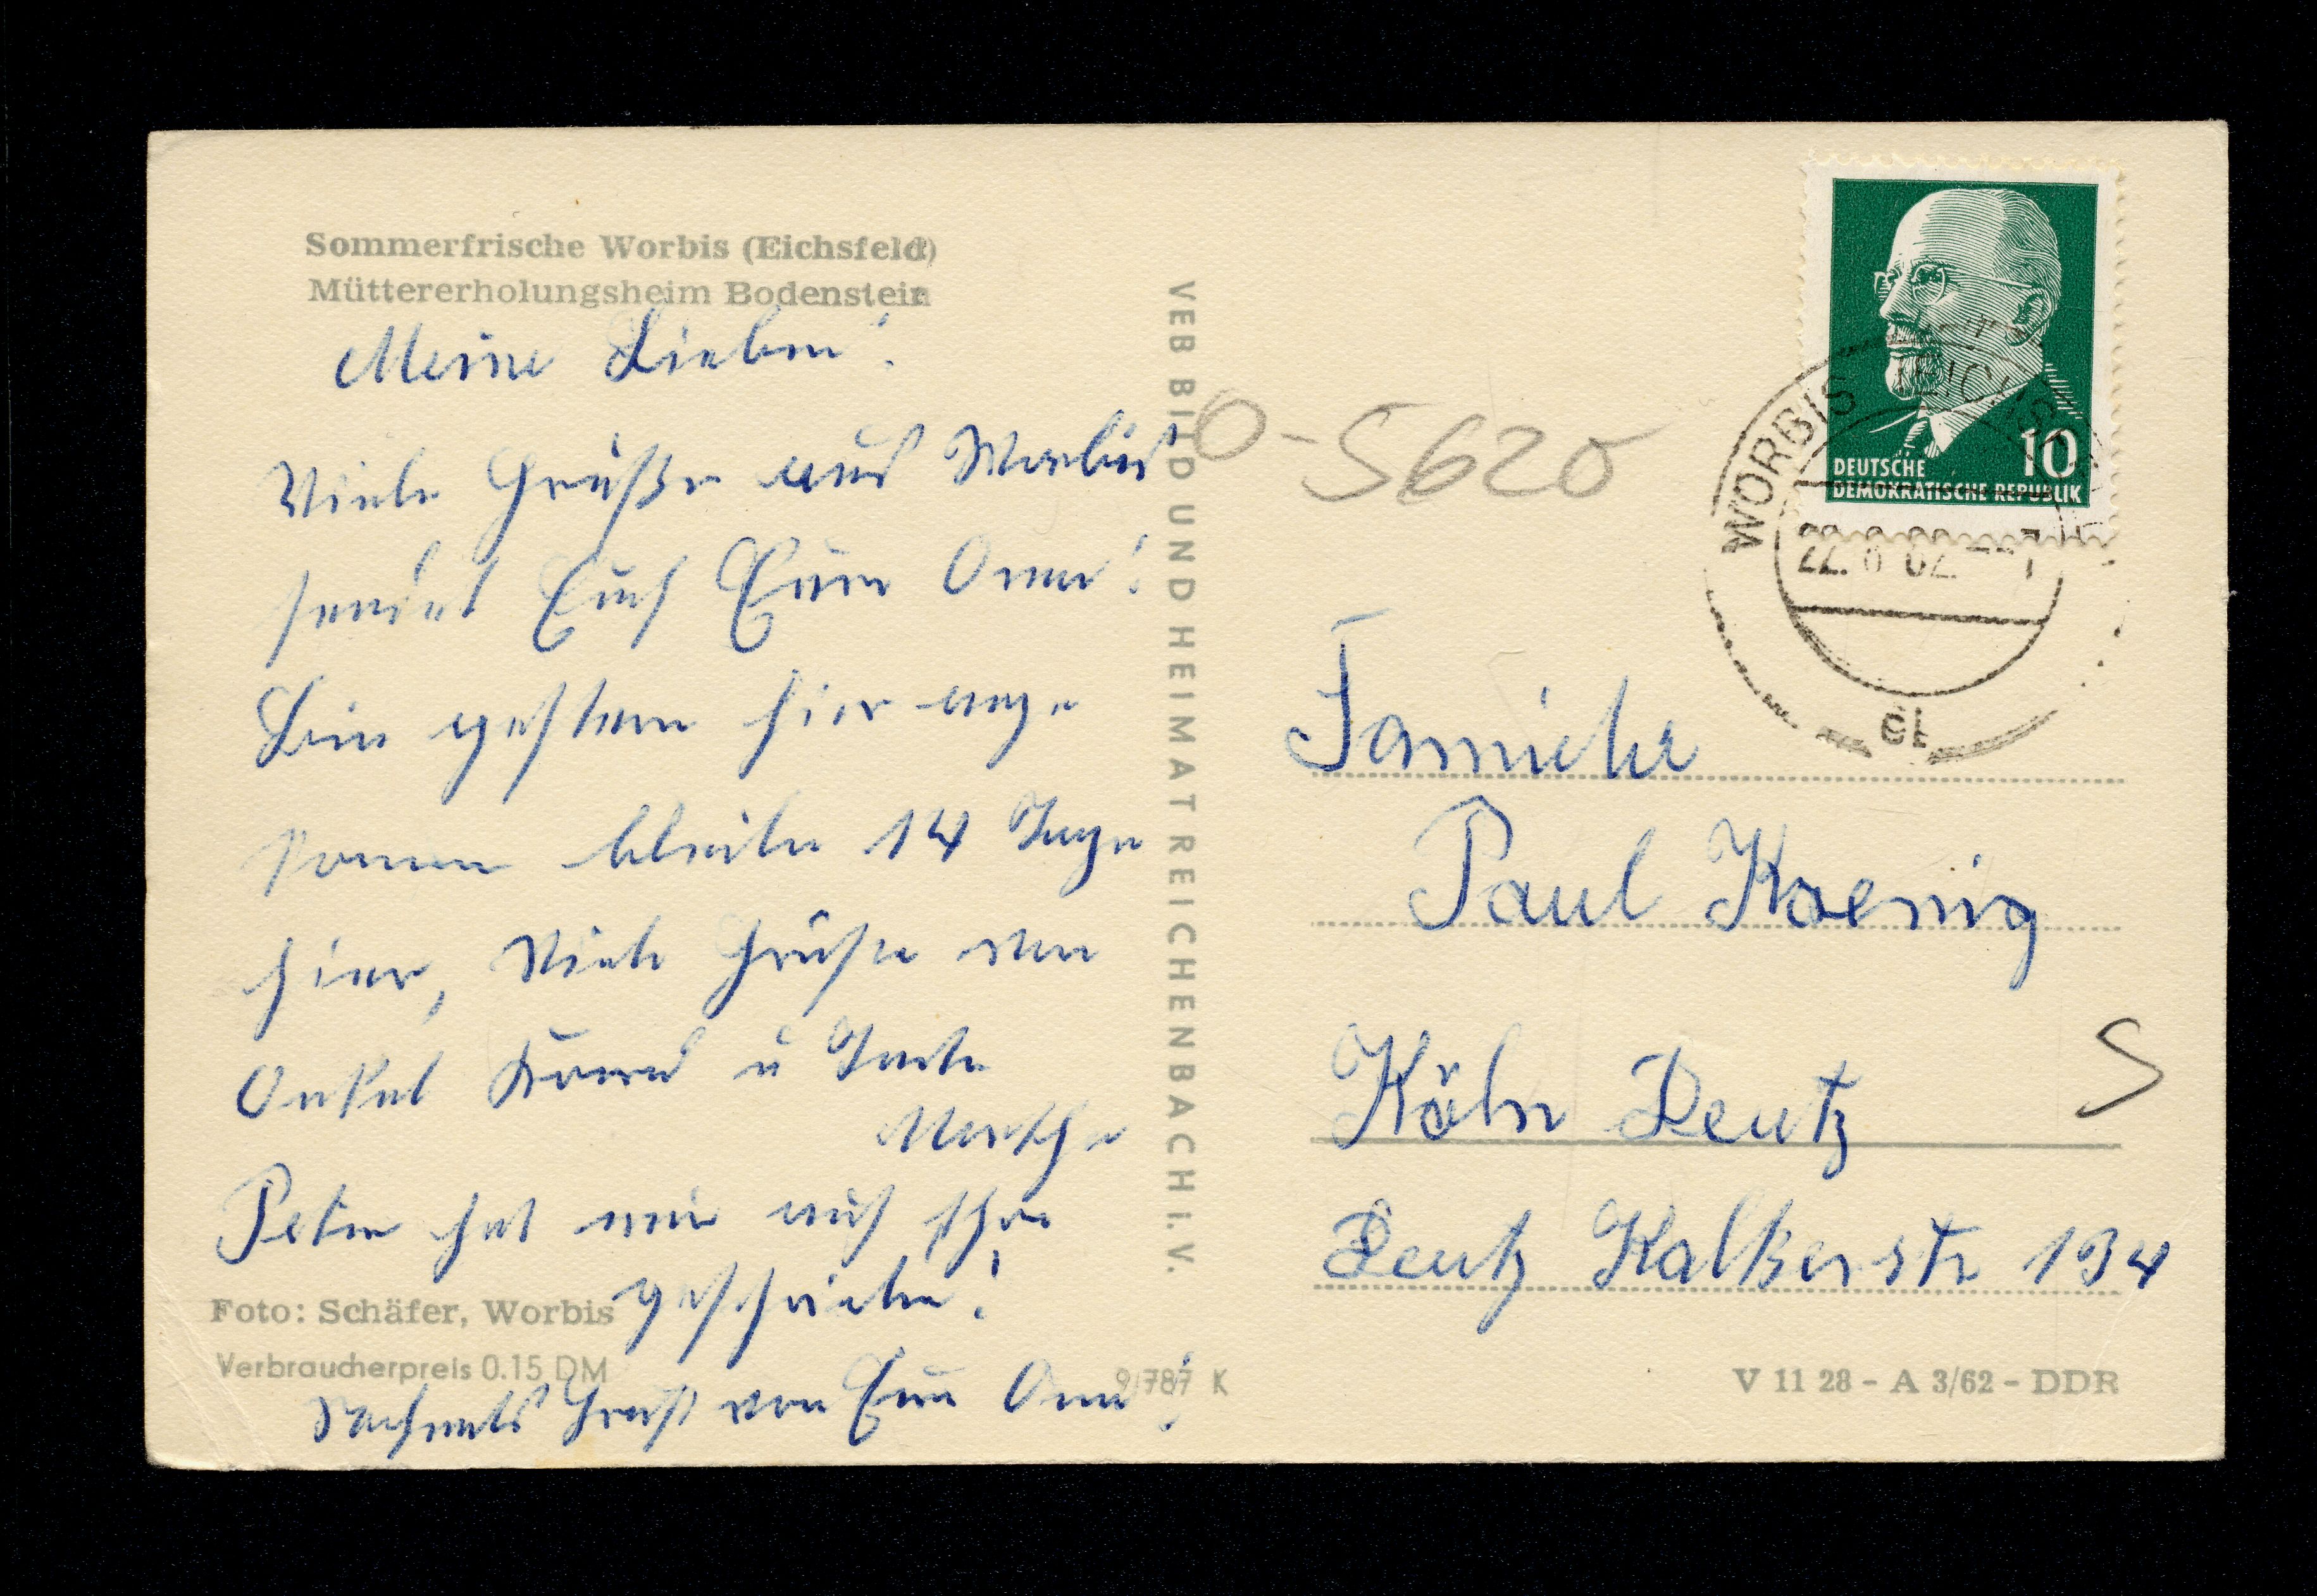 Sommerfrische Worbis (Eichsfeld)
Müttererholungsheim Bodenstein
Meine Lieben!
Viele Grüße aus Worbis
sendet Euch Eure Oma!
Bin gestern hier ange
komen bleibe 14 Tage
hier, Viele Grüße von
Onkel u Tante
Peter hat mir auch schon
geschrieben!
Foto: Schäfer, Worbis
Verbraucherpreis 0.15 DM
Nochmals Gruß von Eure Oma!
9/787 K
VEB BILD UND HEIMAT REICHENBACH I. V.
O-5620
DEUTSCHE
DEMOKRATISCHE REPUBLIK
10
WORBIS
Familie
Paul Koenig
Köln Deutz
S
Deutz Kalkerstr 134
V 11 28 - A 3/62 - DDR